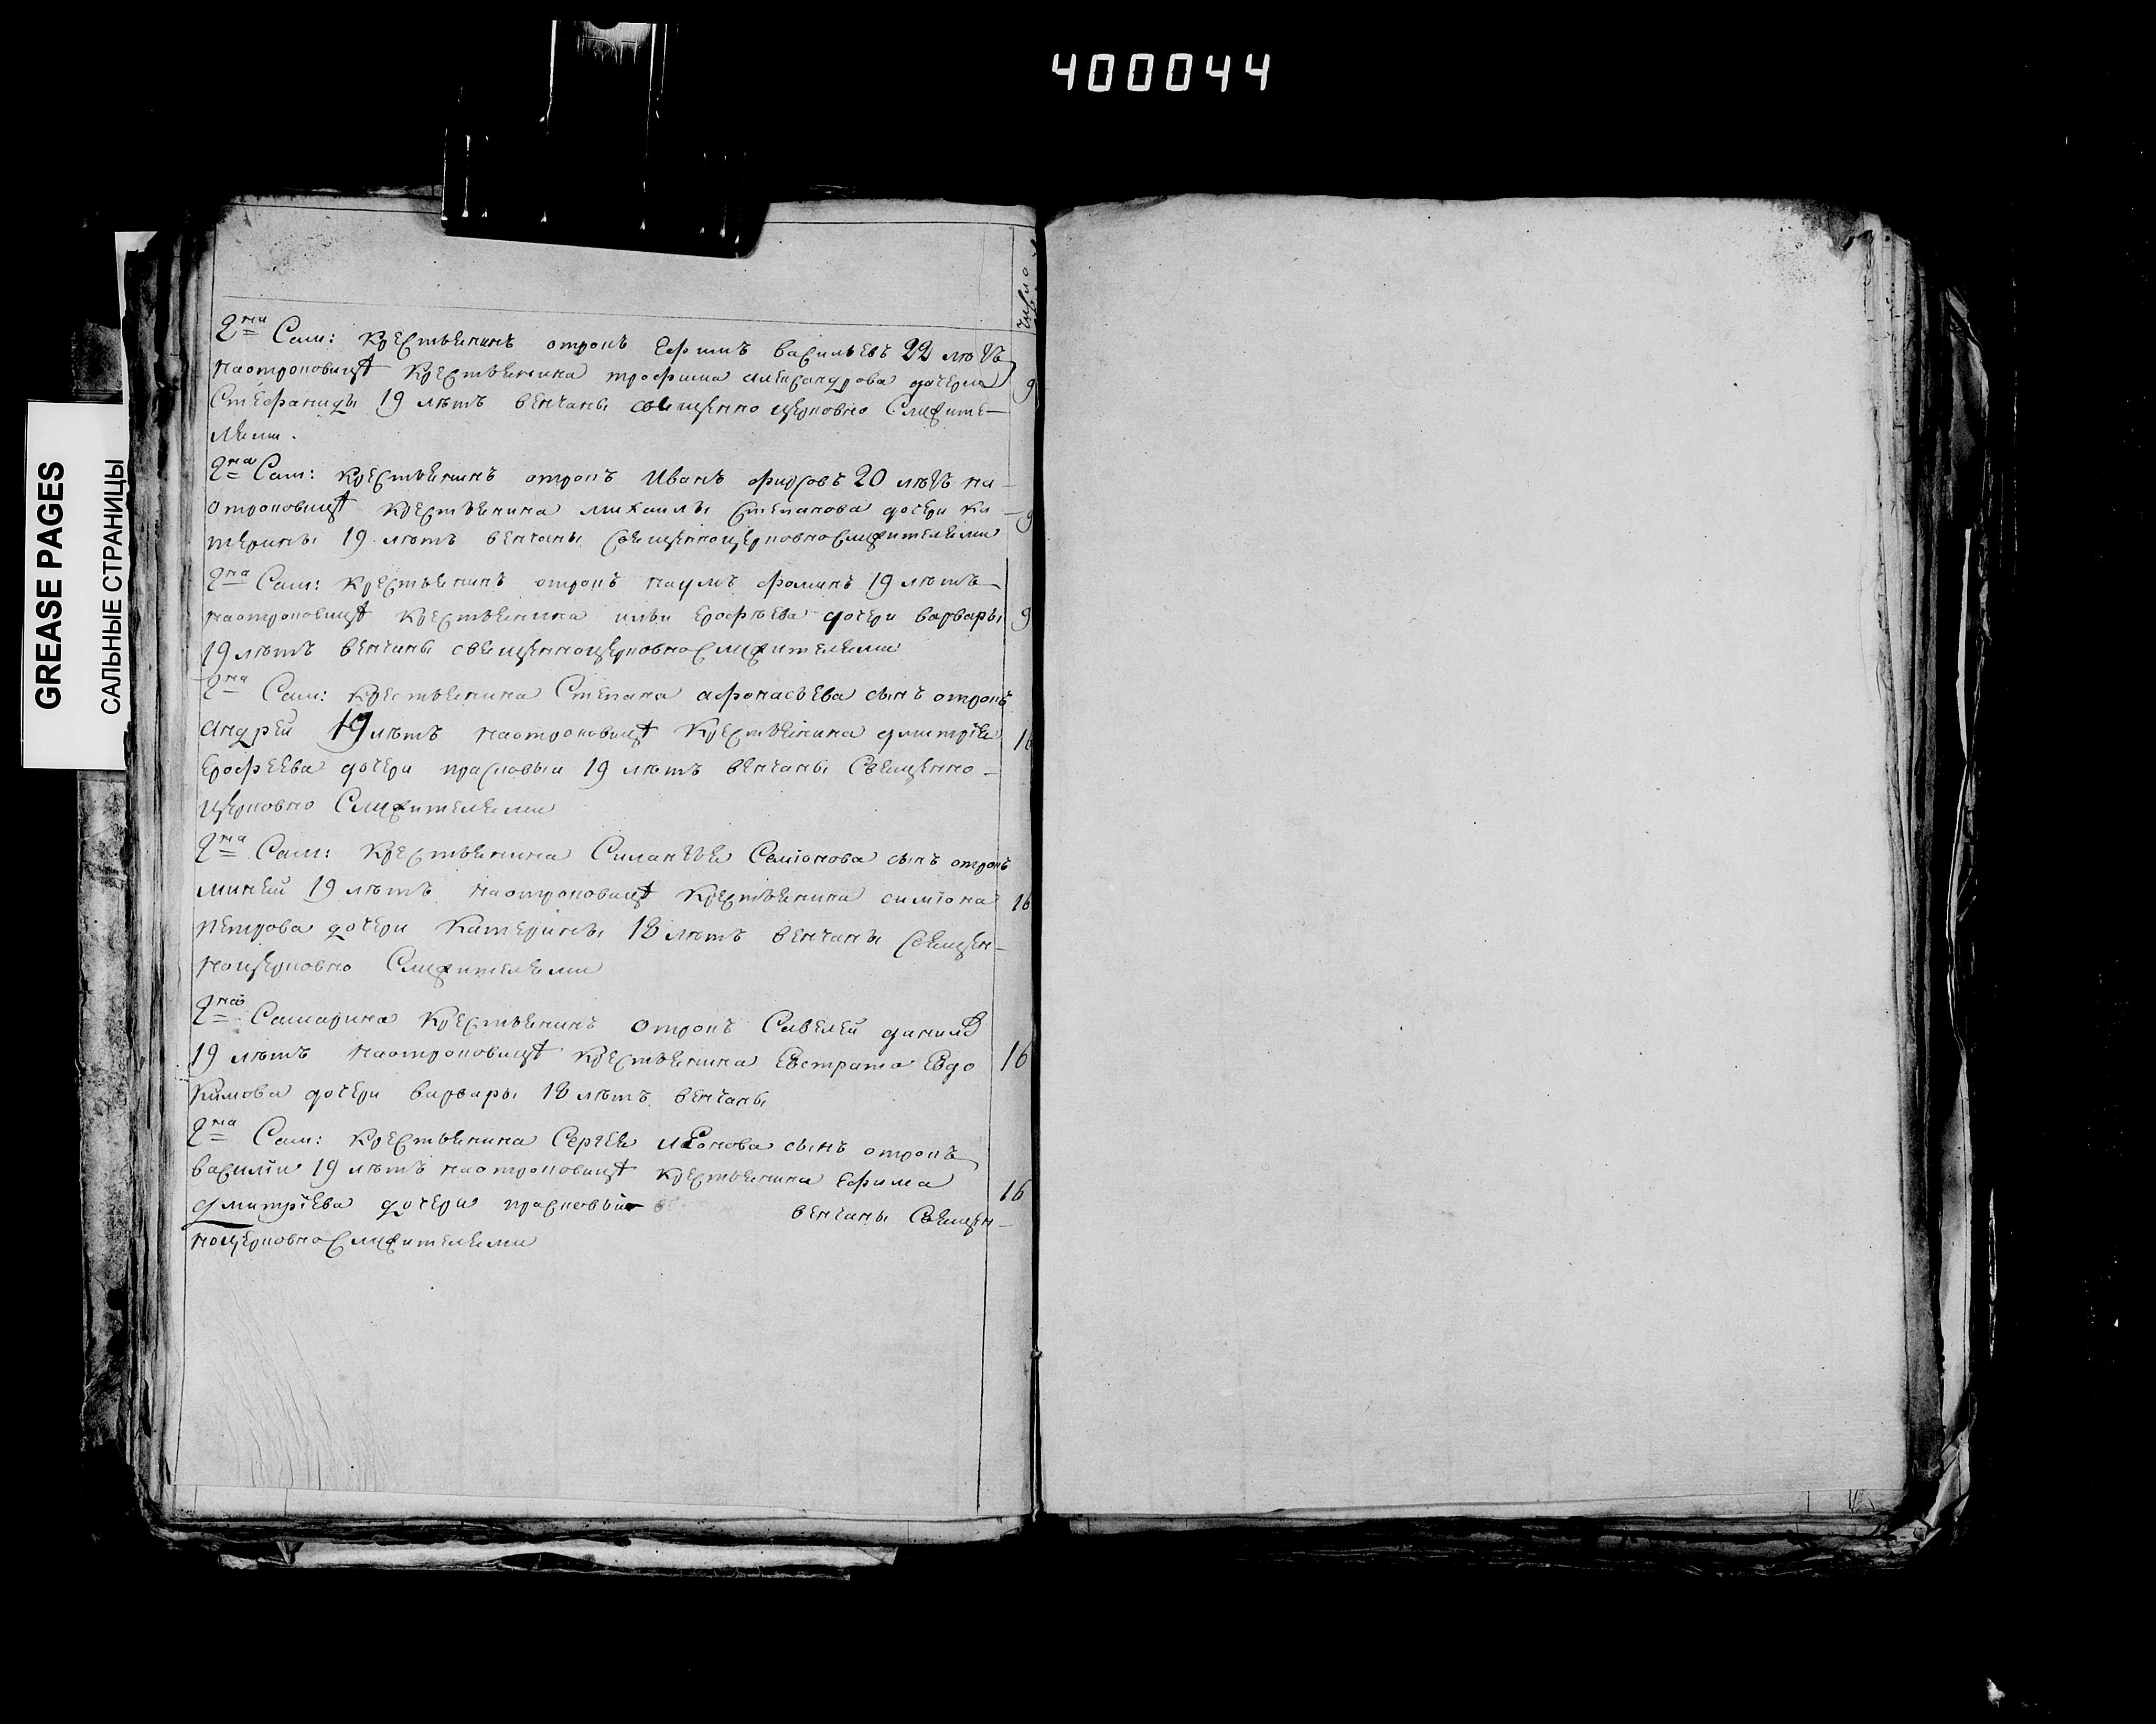 400044
GREASE PAGES
САЛЬНЫЕ СТРАНИЦЫ
число
Гна Сам: крестьянинъ отрокъ Ефимъ васильевъ 22 лѣтъ
наотроковицѣ крестьянина трофима александрова дочери 9
Стефаниды 19 лѣтъ венчаны священно церковно Служите-
лями.
Гна Сам: крестьянинъ отрокъ Иванъ фирсовъ 20 лѣтъ на-
отроковицѣ крестьянина михаилы степанова дочери ка- 9
терины 19 лѣтъ венчаны священноцерковнослужителями
Гна Сам: крестьянинъ отрокъ наумъ фоминъ 19 лѣтъ
наотроковицѣ крестьянина ильи Ерофѣева дочери варвары 9
19 лѣтъ венчаны священноцерковнослужителями
Гна Сам: крестьянина Степана афонасьева сынъ отрокъ
андрей 19 лѣтъ наотроковицѣ крестьянина дмитрїя 16
Ерофеева дочери прасковьи 19 лѣтъ венчаны Священно-
церковно Служителями
Гна Сам: крестьянина Силантья Самїонова сынъ отрокъ
миней 19 лѣтъ наотроковицѣ крестьянина симїона 16
петрова дочери Катерины 18 лѣтъ венчаны священ-
ноцерковно Служителями
Гна Самарина крестьянинъ отрокъ Савелей данилов
19 лѣтъ наотроковицѣ крестьянина Евстрата Евдо 16
кимова дочери варвары 18 лѣтъ венчаны
Гна Сам: крестьянина Сергея сынъ отрокъ
василїи 19 лѣтъ наотроковицѣ крестьянина Ефима 16
дмитрїева дочери прасковьи венчаны Священ-
ноцерковнослужителями